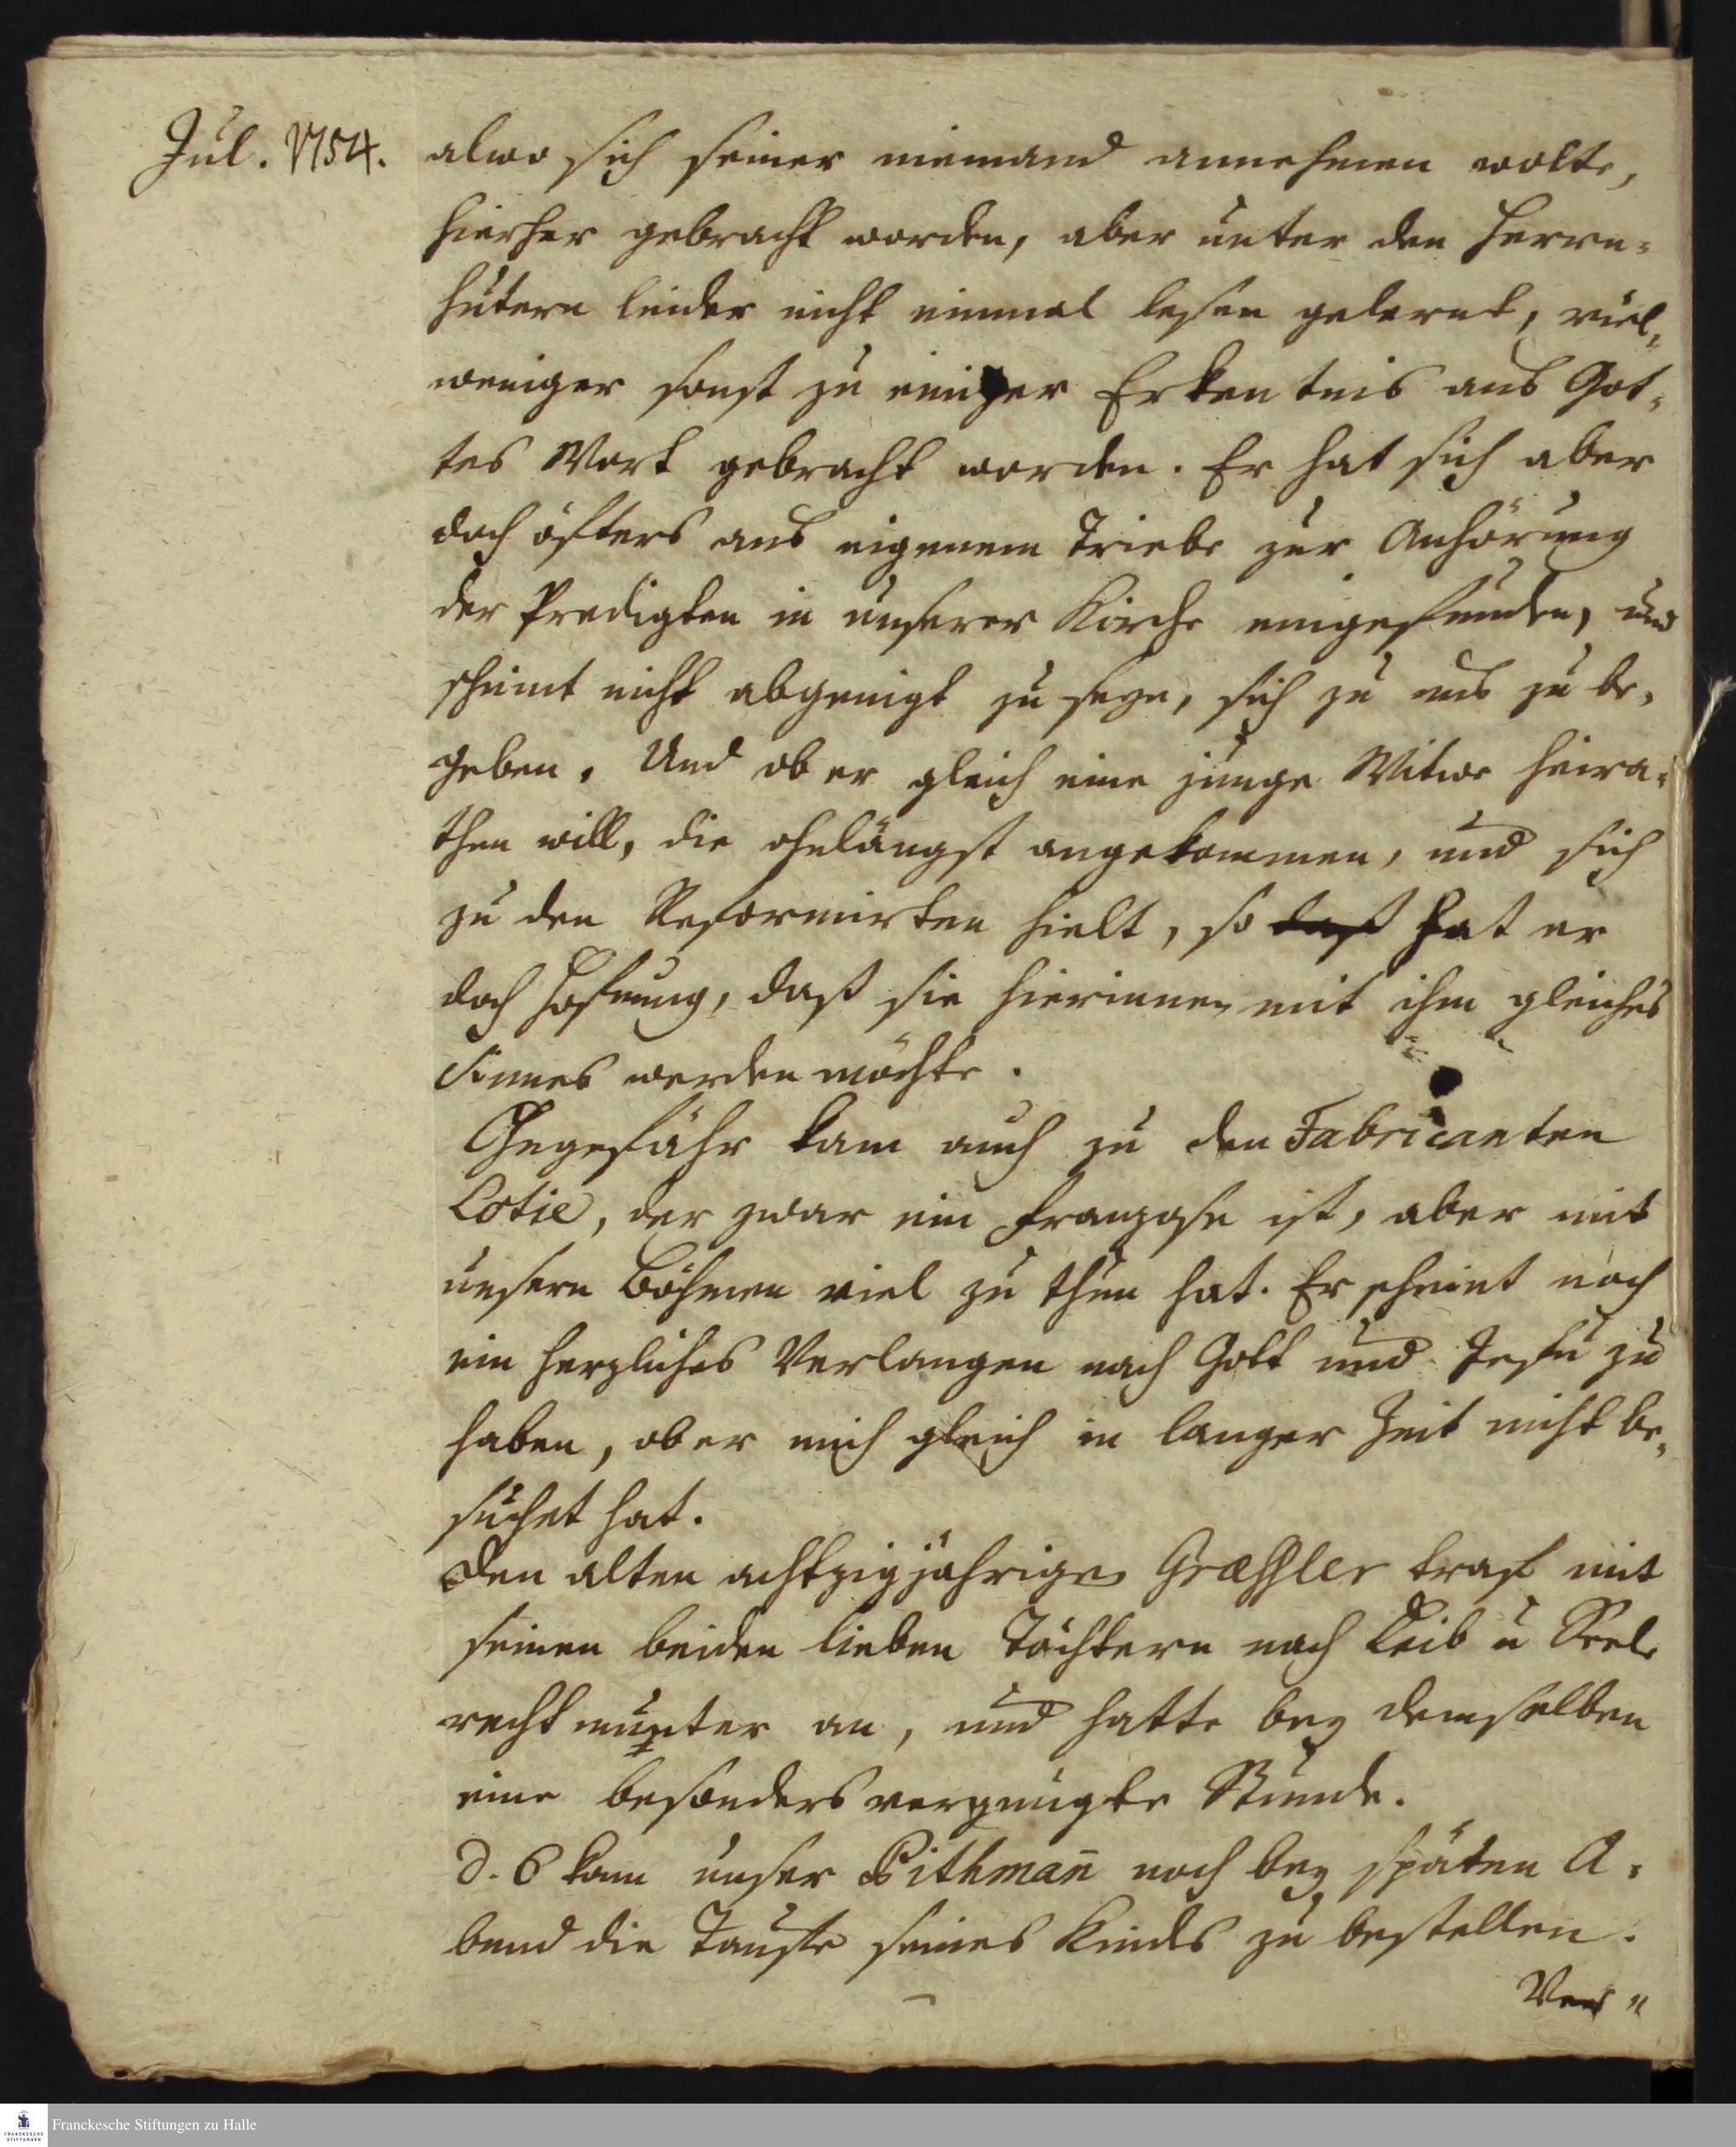 Jul. 1754.
alwo sich seiner niemand annehmen wolte,
hierher gebracht worden, aber unter den Herrn-
hutern leider nicht einmal lesen gelernt, viel-
weniger sonst zu einiger Erkentnis aus Got-
tes Wort gebracht worden. Er hat sich aber
doch öfters aus eigenem Triebe zur Anhörung
der Predigten in unserer Kirche eingefunden, und
scheint nicht abgeneigt zu seyn, sich zu uns zu be-
geben. Und ob er gleich eine junge Witwe heira-
then will, die ohnlängst angekommen, und sich
zu den Reformirten hielt, so daß hat er
doch Hofnung, daß sie hierinnen mit ihm gleiches
Sinnes werden möchte.
Ohngefähr kam auch zu den Fabricanten
Cotie, der zwar ein Franzose ist, aber mit
unsern Böhmen viel zu thun hat. Er scheint noch
ein herzliches Verlangen nach Gott und Jesu zu
haben, ob er mich gleich in langer Zeit nicht be-
suchet hat.
Den alten achtzigjährigen Græssler traf mit
seinen beiden lieben Töchtern nach Leib u Seel
recht munter an, und hatte bey demselben
eine besonders vergnügte Stunde.
d. 6 kam unser Pithman̄ noch bey späten A-
bend die Taufe seines Kinds zu bestellen.
Franckesche Stiftungen zu Halle
FRANCKESCHE STIFTUNGEN